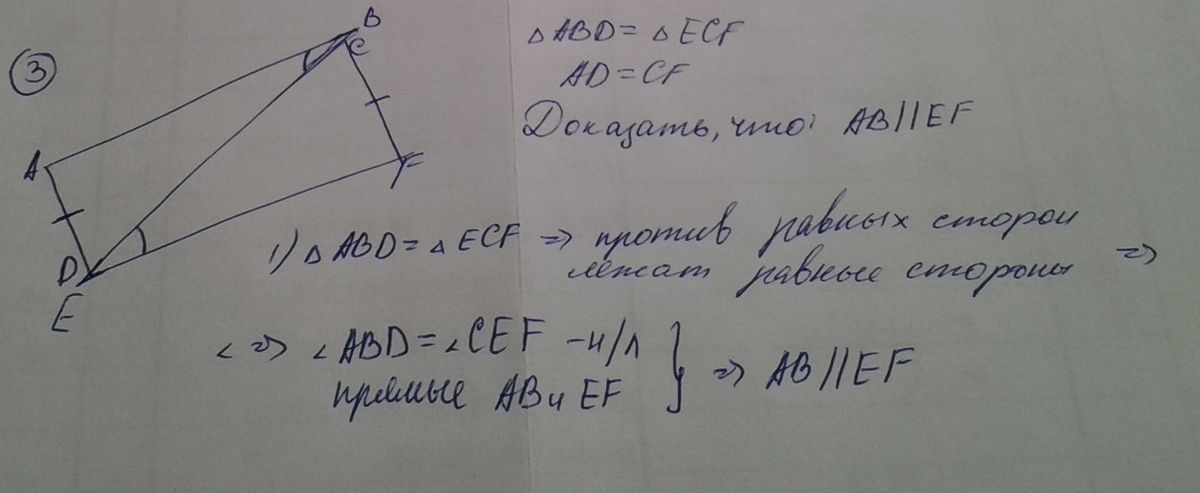 3
B
C
A
F
D
E
△ABD = △ECF
AD = CF
Доказать, что: AB // EF
1) △ABD = △ECF => против равных сторон
лежат равные стороны =>
<=> ∠ABD = ∠CEF - н/л
прямые AB и EF } => AB // EF